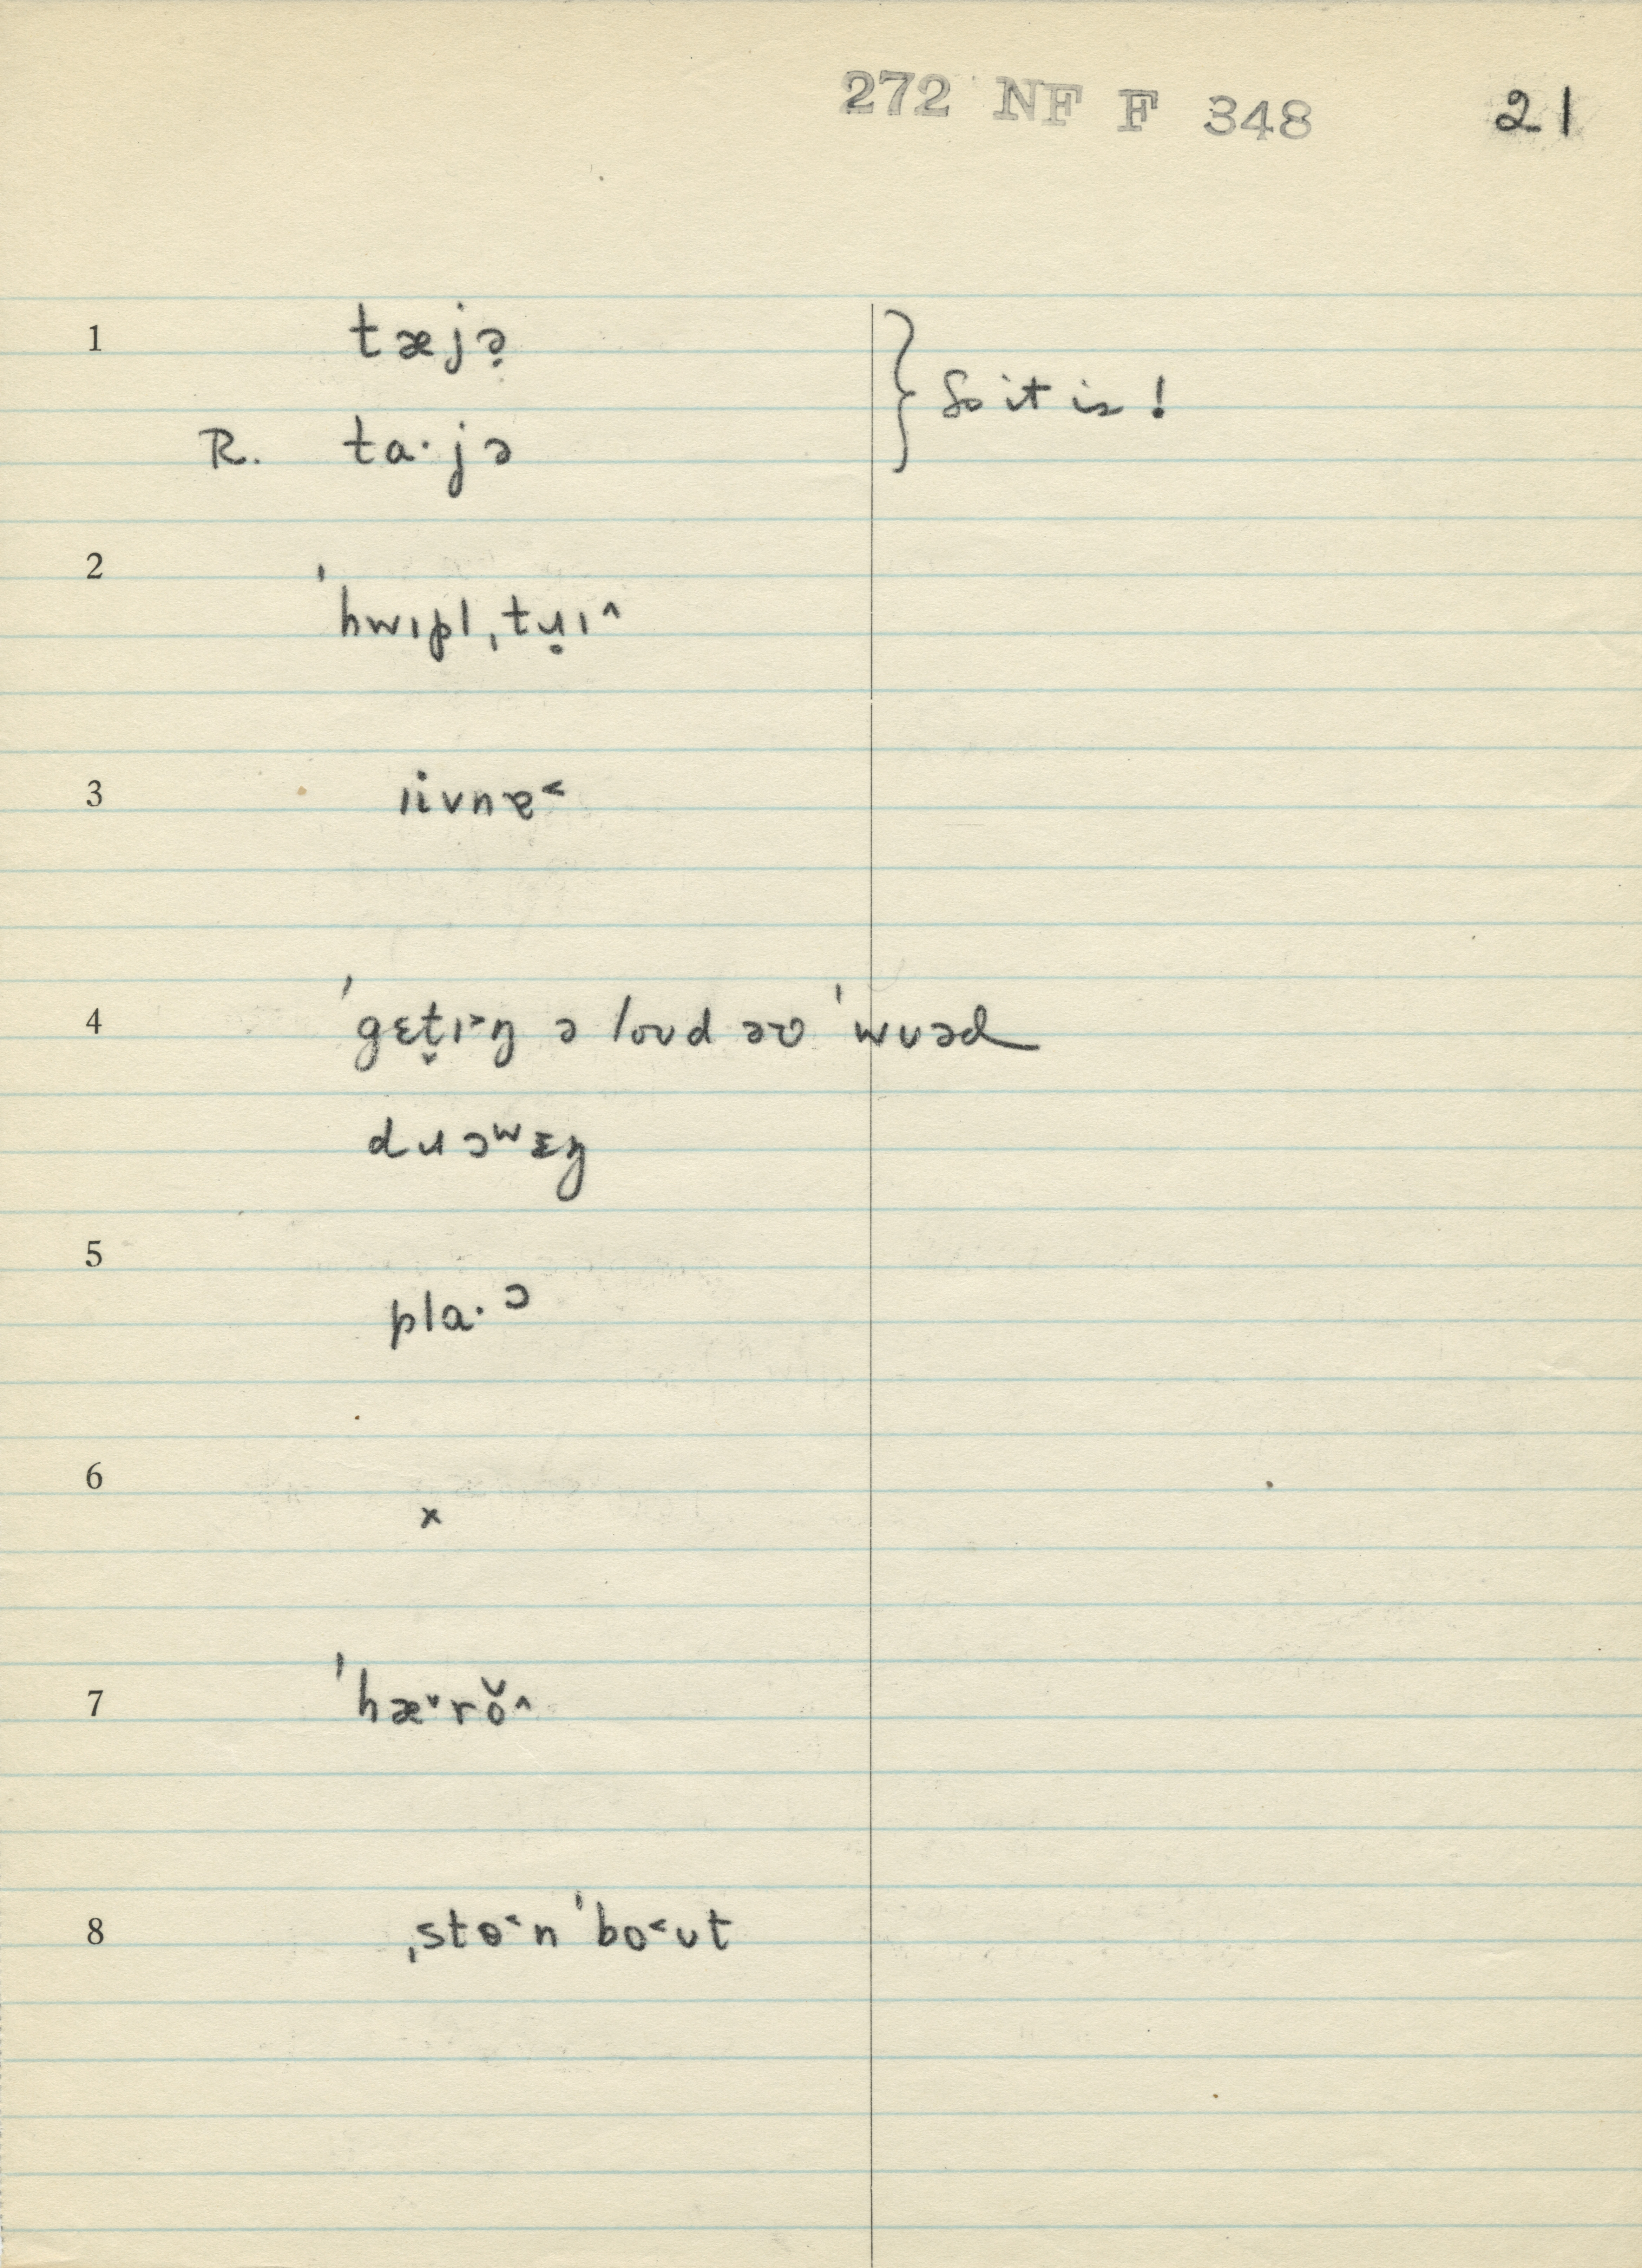 272 NF F 348 21
1 tæjə̣
So it is !
R. ta·jə
2
ˈhwɪpl̩ˌtʉ̣ɪ^
3 ɪivnɐ˂
4 ˈgɛt̬ɪ˃ŋ ə loʊd əʊ ˈwʊəd
dʉɔʷɛŋ
5
pla·ɔ
6
x
7 ˈhæ˅rŏ^
8 ˌstɵ˂n ˈbo˂ʊt